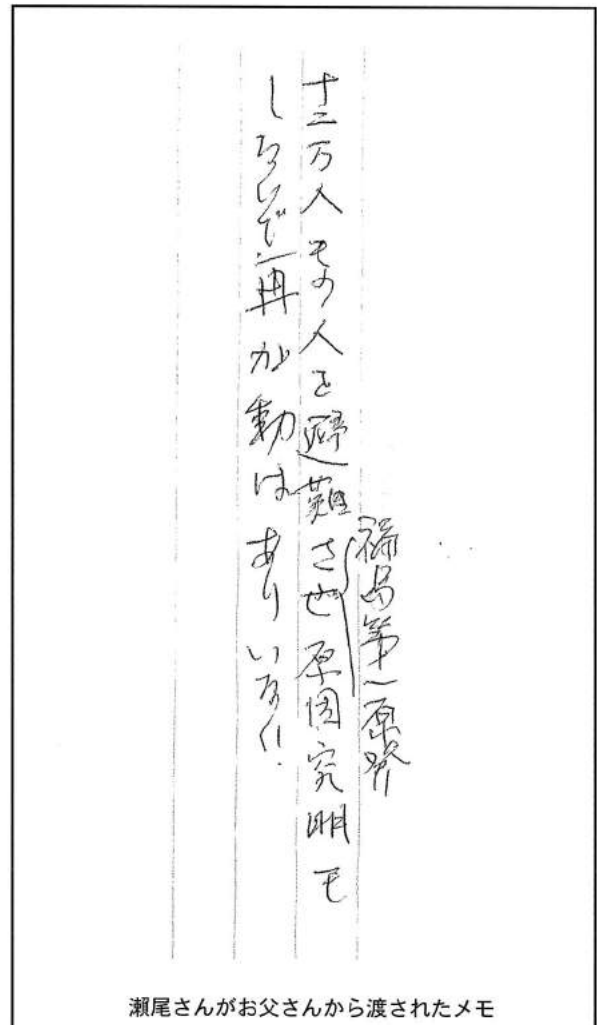 福島第一原発
十二万人もの人を避難させ原因究明も
しないで再か動はありいない!
瀬尾さんがお父さんから渡されたメモ